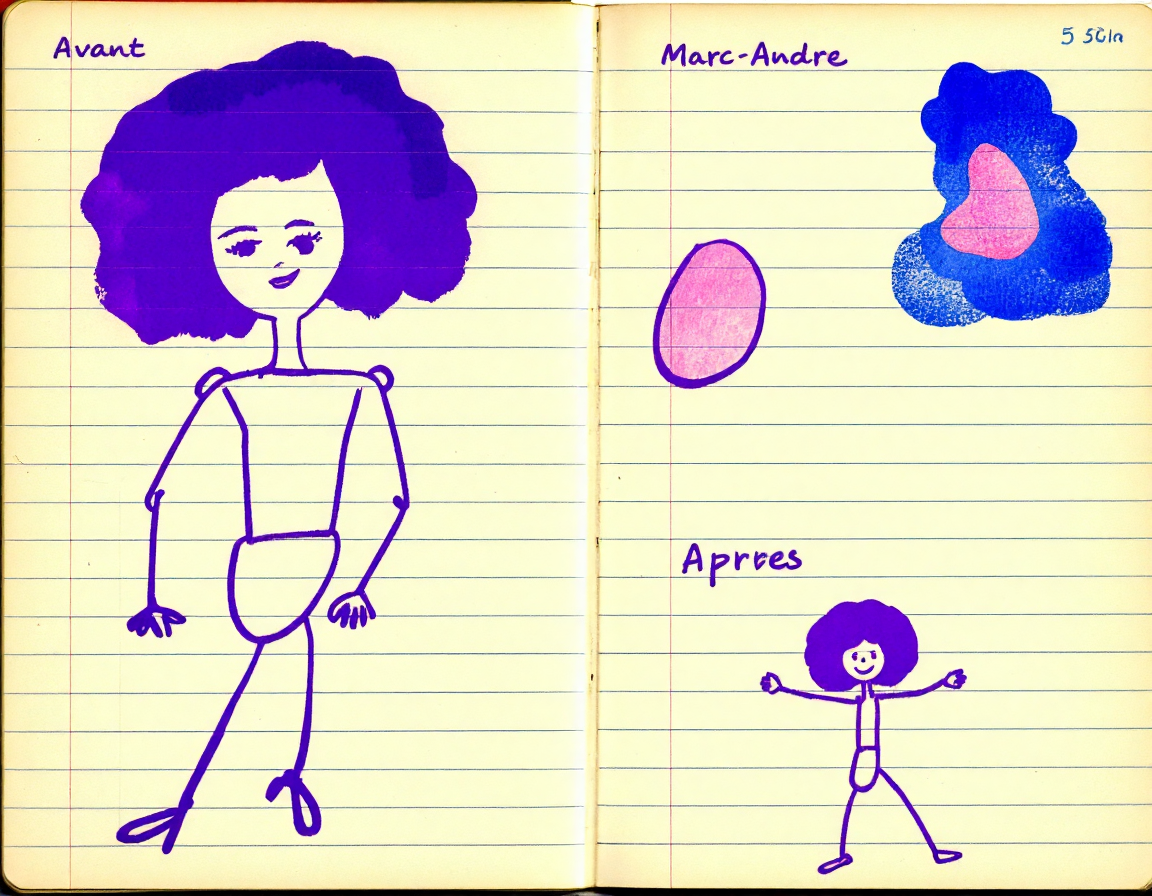 Avant
Marc-Andre
Aprres